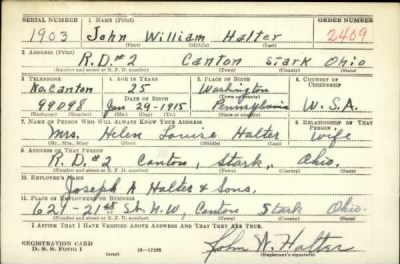 SERIAL NUMBER 1. NAME (Print) ORDER NUMBER
1903 John William Halter 2409
(First) (Middle) (Last)
2. ADDRESS (Print)
R.D.#2 Canton Stark Ohio
(Number and street or R. F. D. number) (Town) (County) (State)
3. TELEPHONE 4. AGE IN YEARS 5. PLACE OF BIRTH 6. COUNTRY OF CITIZENSHIP
No. Canton 25 Washington
DATE OF BIRTH (Town or county)
99098 Jan 29-1915 Pennsylvania U.S.A.
(Exchange) (Number) (Mo.) (Day) (Yr.) (State or country)
7. NAME OF PERSON WHO WILL ALWAYS KNOW YOUR ADDRESS 8. RELATIONSHIP OF THAT PERSON
Mrs. Helen Louise Halter Wife
(Mr., Mrs., Miss) (First) (Middle) (Last)
9. ADDRESS OF THAT PERSON
R.D.#2 Canton, Stark, Ohio.
(Number and street or R. F. D. number) (Town) (County) (State)
10. EMPLOYER'S NAME
Joseph A Halter & Sons.
11. PLACE OF EMPLOYMENT OR BUSINESS
621-21st St. N.W, Canton Stark Ohio.
(Number and street or R. F. D. number) (Town) (County) (State)
I AFFIRM THAT I HAVE VERIFIED ABOVE ANSWERS AND THAT THEY ARE TRUE.
REGISTRATION CARD
D. S. S. FORM 1 (over) 16-17105
John W. Halter
(Registrant's signature)